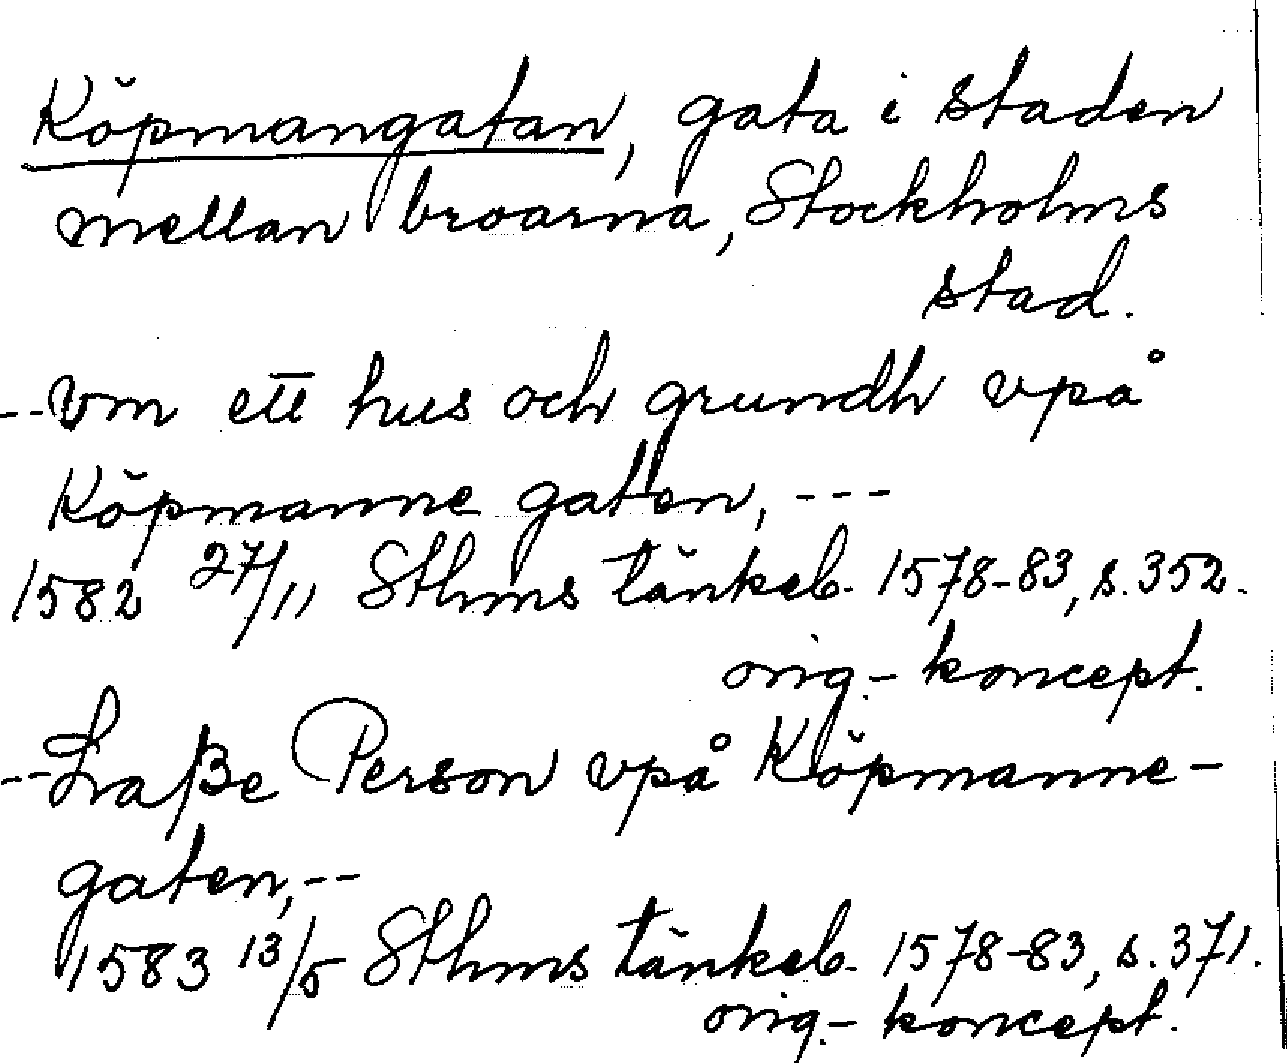 Köpmangatan, gata i staden
mellan broarna, Stockholms
stad.
--vm ett hus och grundh vpå
Köpmanne gaten, ---
1582 27/11 Sthms tänkeb. 1578-83, s. 352.
orig.- koncept.
--Laße Person vpå Köpmanne-
gaten, --
1583 13/5 Sthms tänkeb. 1578-83, s. 371.
orig.- koncept.